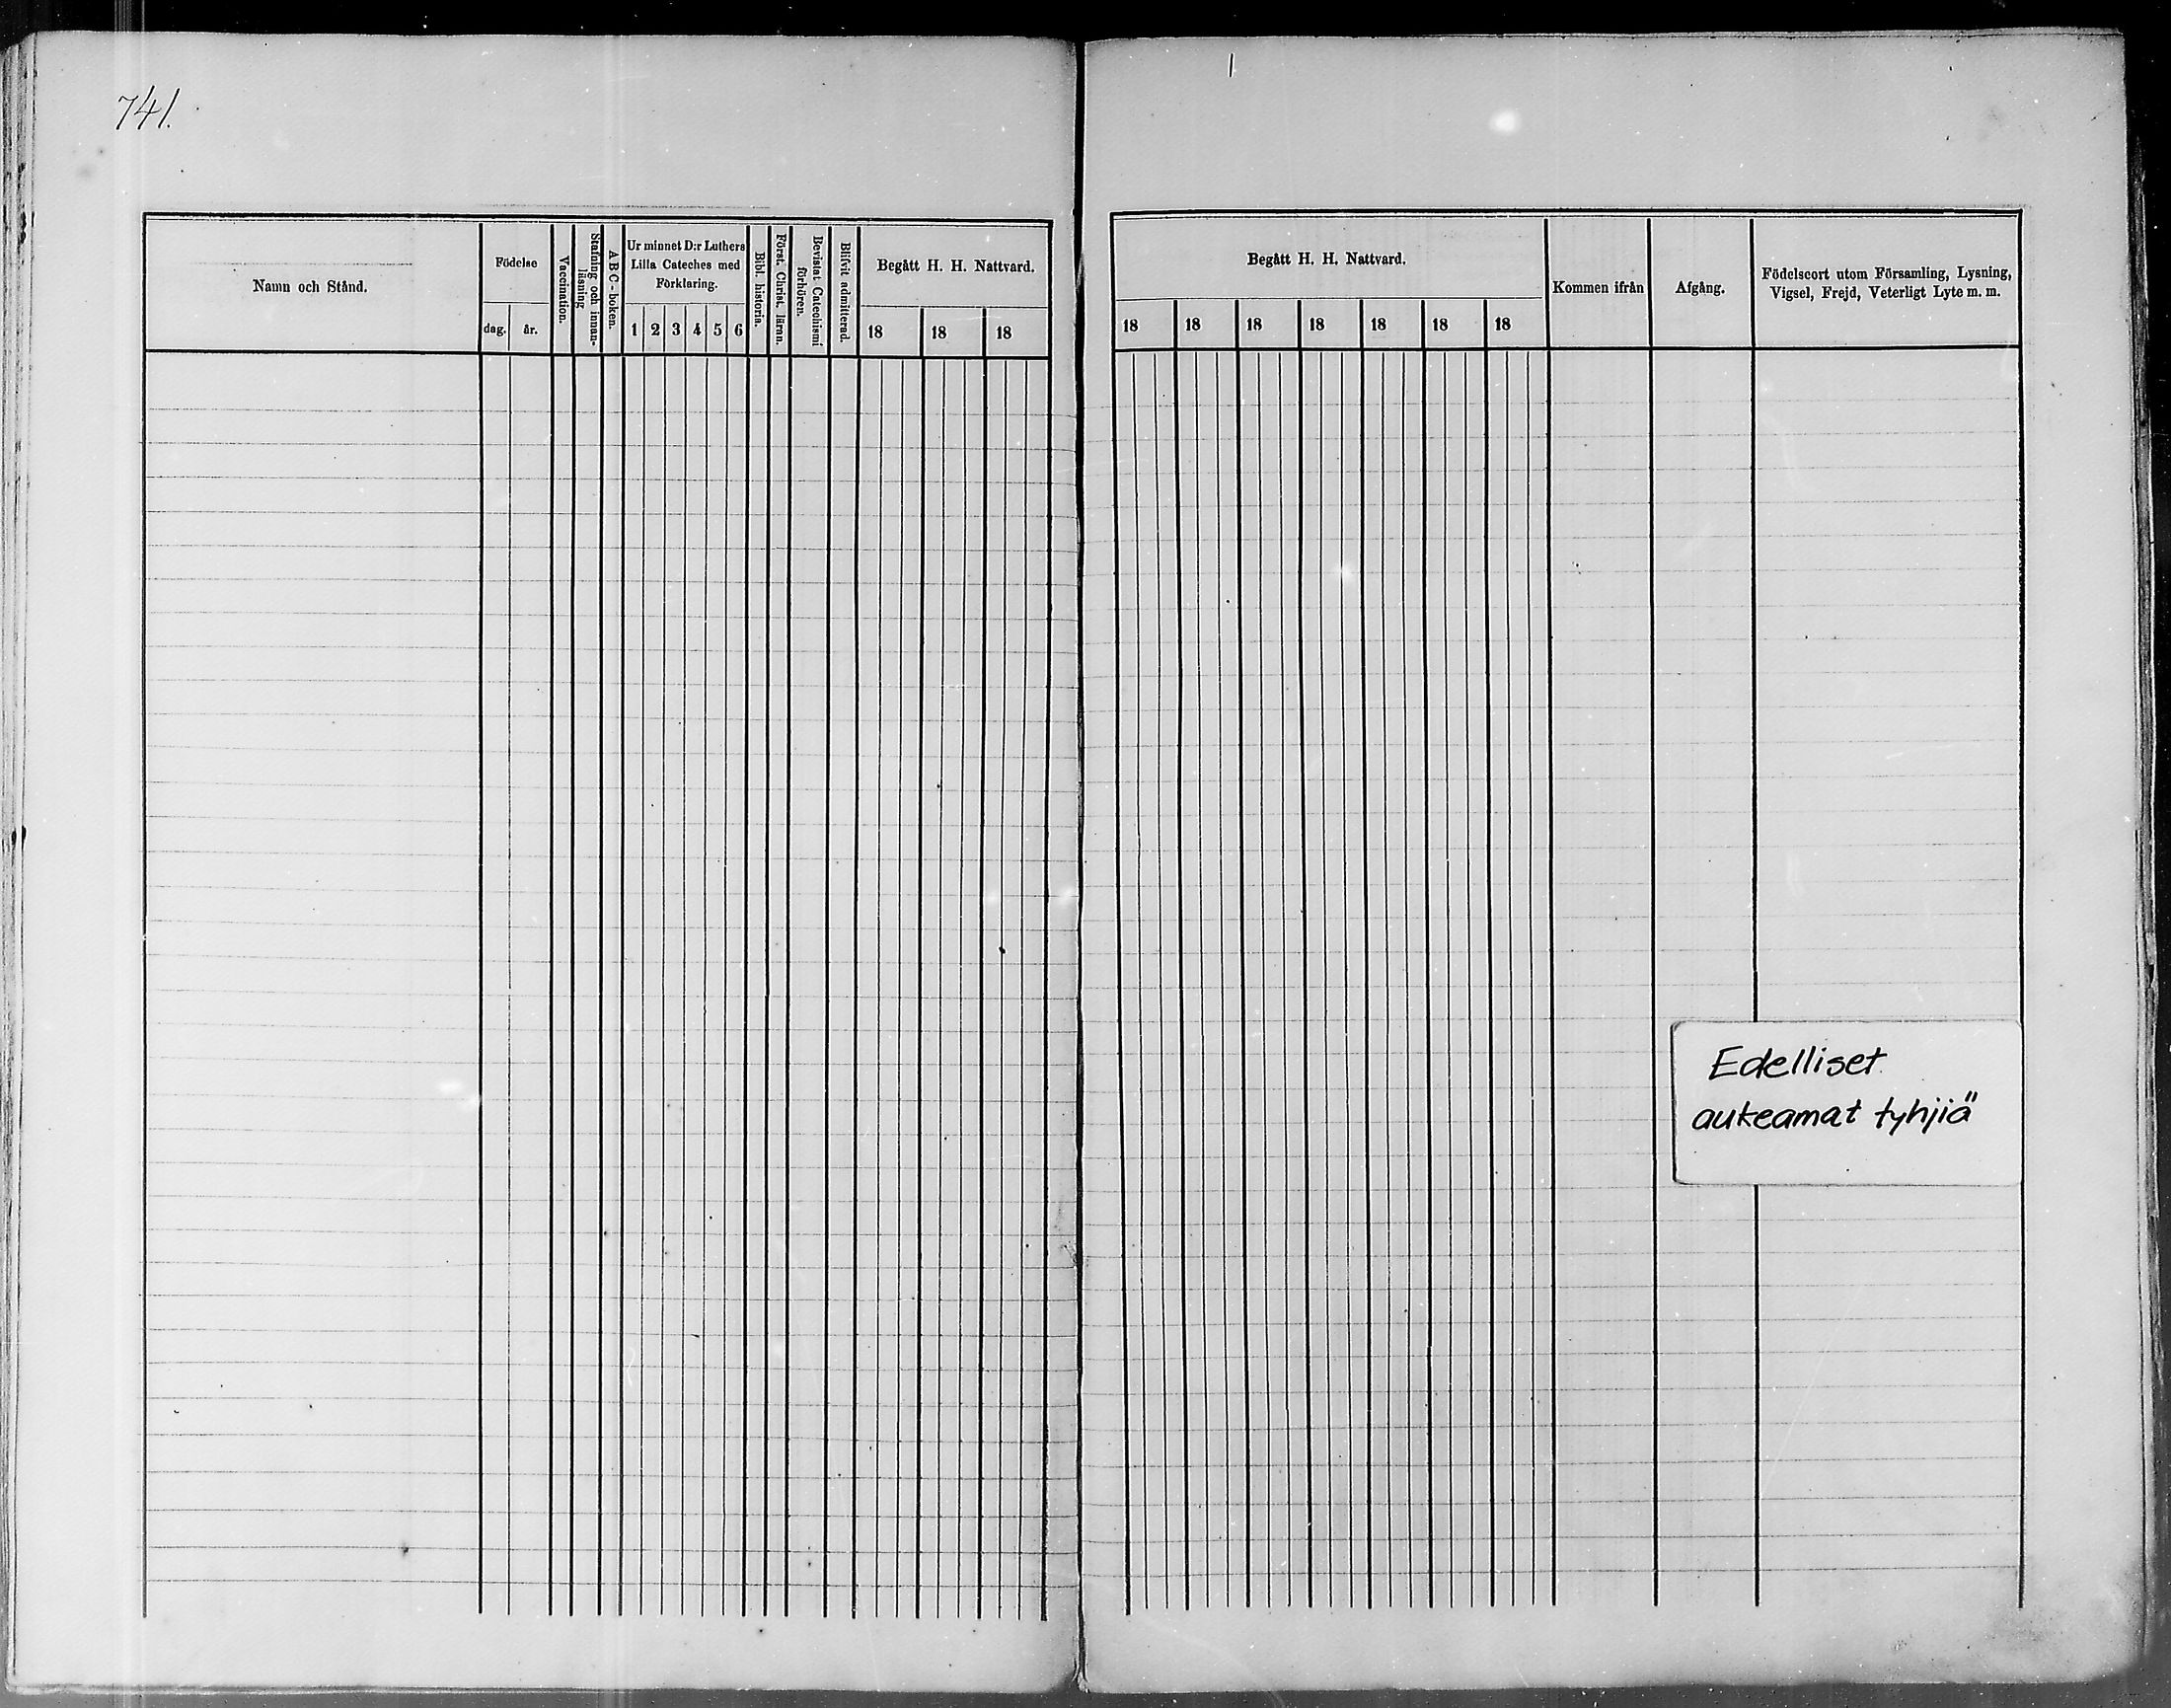 741.
Namn och Stånd.
Födelse
dag.
år.
Vaccination.
Stafning och innan-
läsning
A B C - boken.
Ur minnet D:r Luthers
Lilla Cateches med
Förklaring.
1 2 3 4 5 6
Bibl. historia.
Först. Christ. läran.
Bevistat Catechismi
förhören.
Blifvit admitterad.
Begått H. H. Nattvard.
18 18 18
Begått H. H. Nattvard.
18 18 18 18 18 18 18
Kommen ifrån
Afgång.
Födelseort utom Församling, Lysning,
Vigsel, Frejd, Veterligt Lyte m. m.
Edelliset
aukeamat tyhjiä